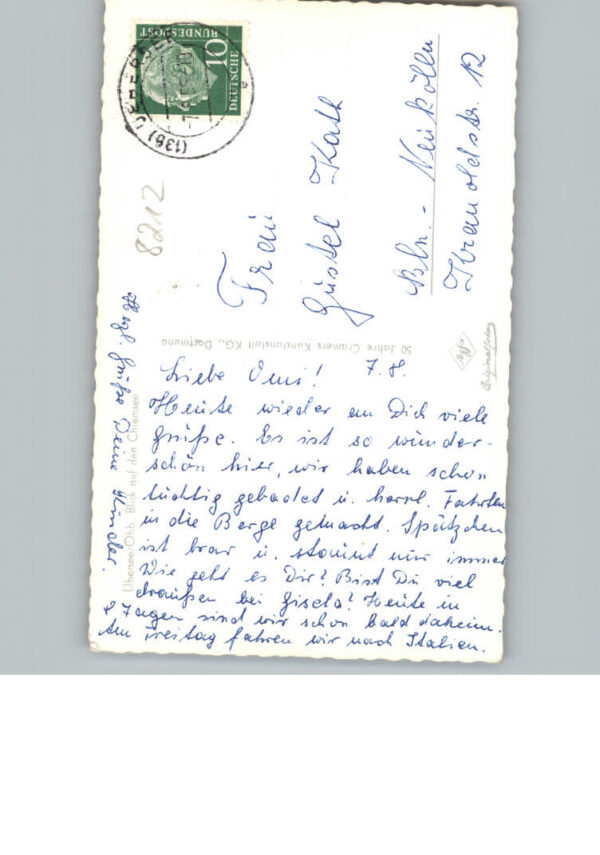 DEUTSCHE
BUNDESPOST
10
(13b) ÜBERSEE
8212
Frau
Gustel Kath
Bln.-Neukölln
Kranoldstr. 12
50 Jahre Cramers Kunstanstalt KG., Dortmund
Übersee/Obb. Blick auf den Chiemsee
7.8.
Liebe Omi!
Heute wieder an Dich viele
Grüße. Es ist so wunder-
schön hier, wir haben schon
tüchtig gebadet u. herrl. Fahrten
in die Berge gemacht. Spätzchen
ist brav u. staunt nur immer
Wie geht es Dir? Bist Du viel
draußen bei Gisela? Heute in
8 Tagen sind wir schon bald daheim.
Am Freitag fahren wir nach Italien.
Herzl. Grüße Deine Kinder.